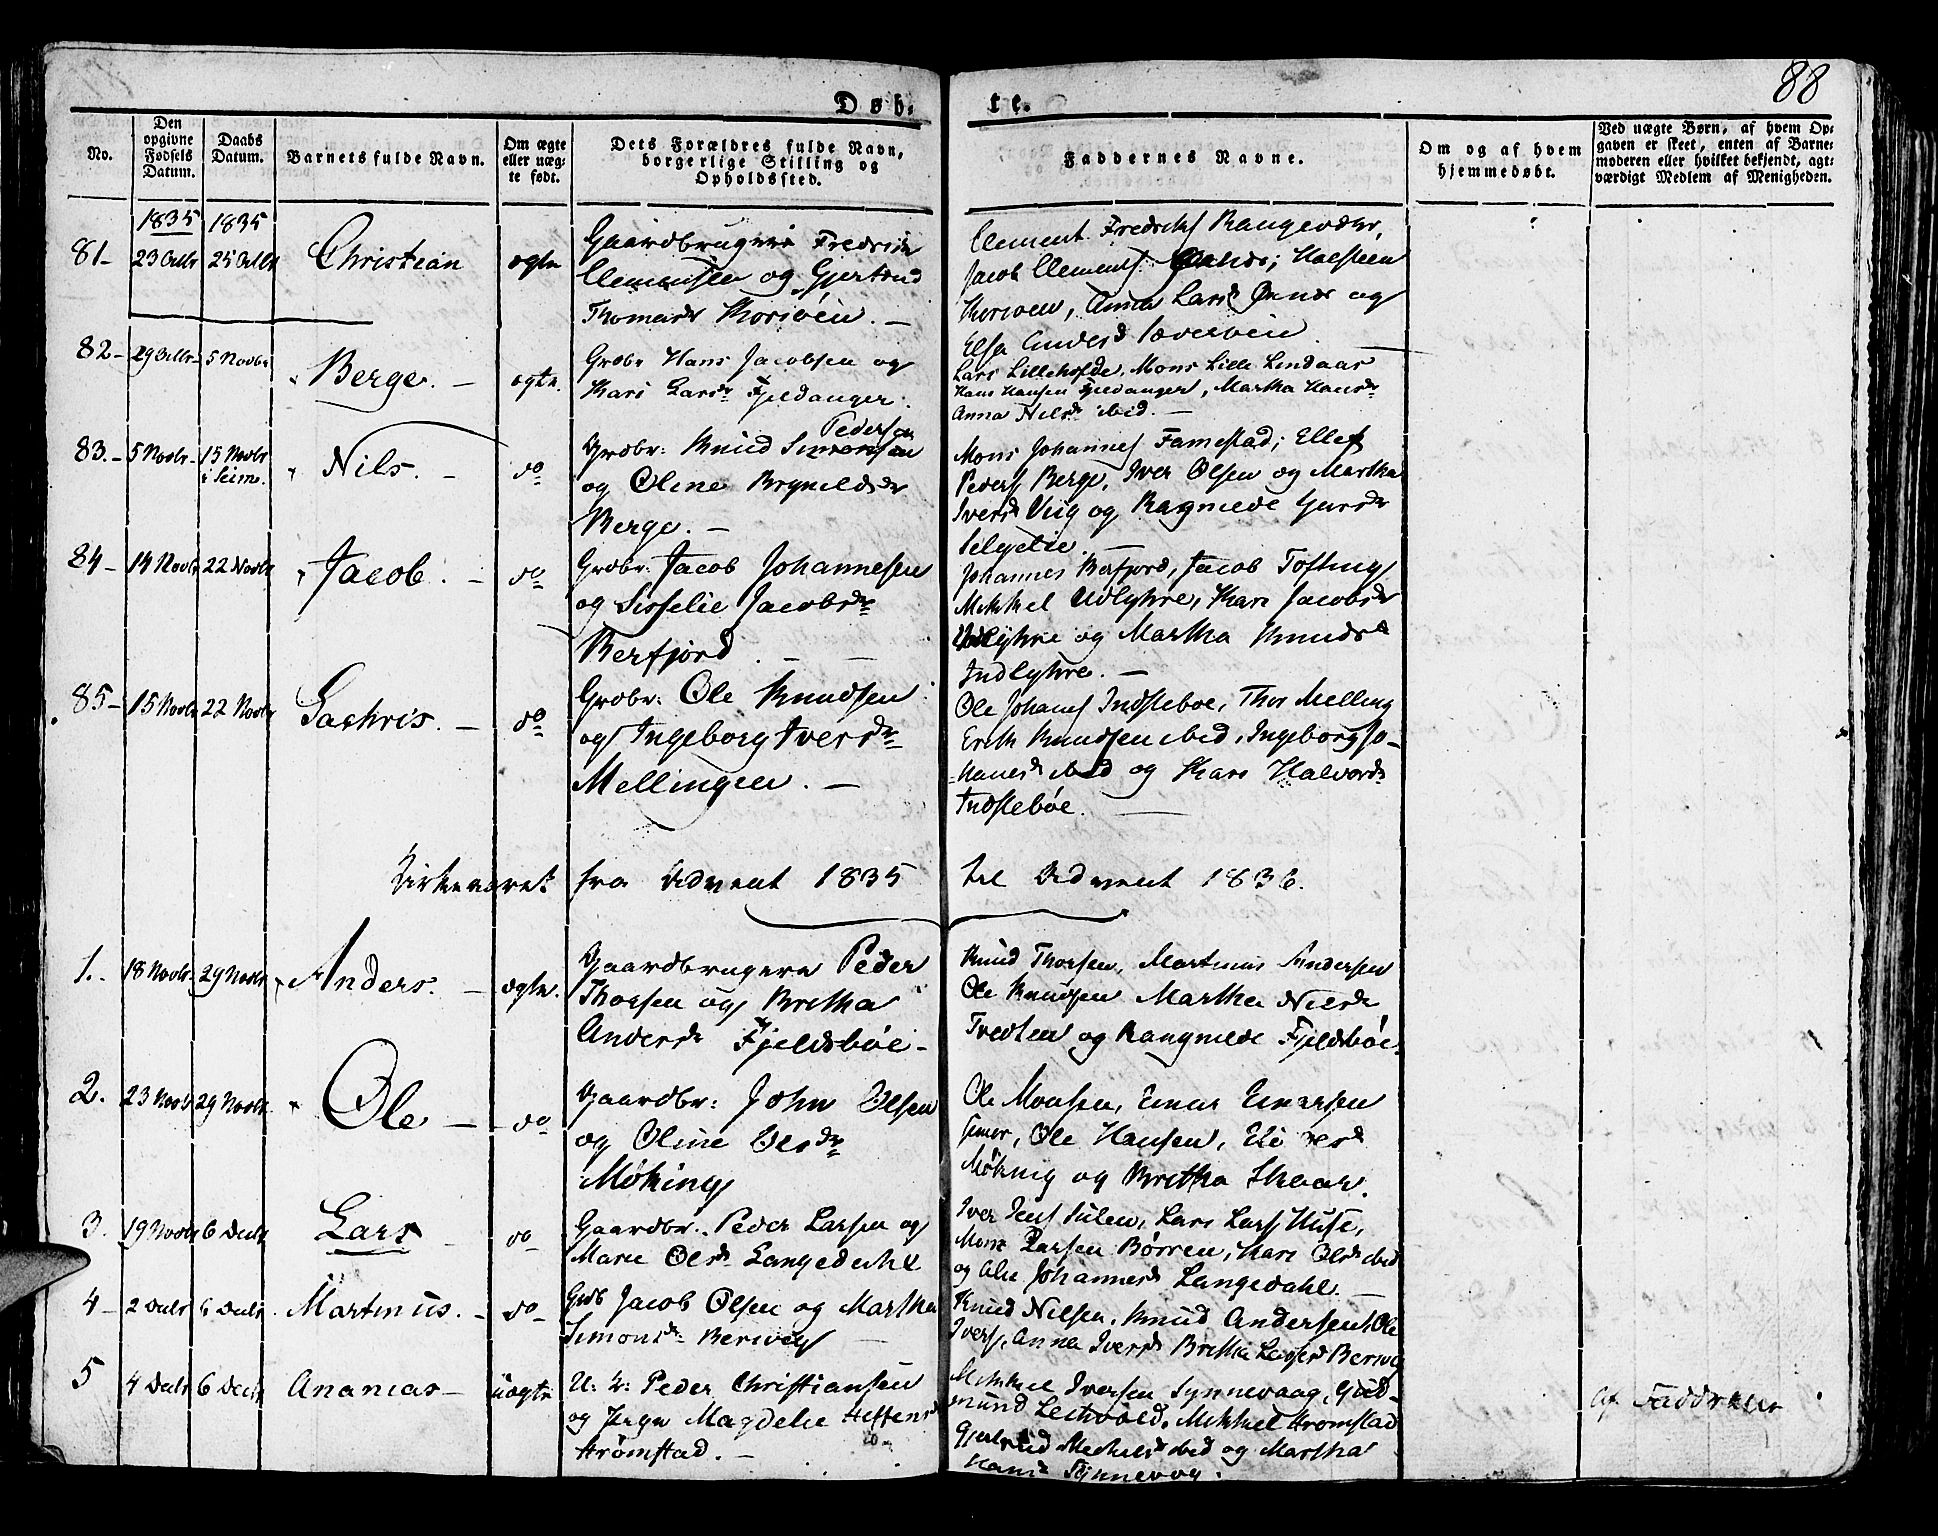 88
Døb-
te.
No.
Den opgivne Fødsels Datum.
Daabs Datum.
Barnets fulde Navn.
Om ægte eller uæg-te født.
Dets Forældres fulde Navn, borgerlige Stilling og Opholdssted.
Faddernes Navne.
Om og af hvem hjemmedøbt.
Ved uægte Børn, af hvem Op-
gaven er skeet, enten af Barne-
moderen eller hvilket bekjendt, agt-
værdigt Medlem af Menigheden.
1835 1835
81- 23 Octbr 25 Octbr Christian ægte
Gaardbruger Fredrik
Clemensen og Gjertrud
Thomasdr
Clement Fredriks
Jacob Clements
Anna Lars og
Elsa
82- 29 Octbr 5 Novbr Berge. - ægte.
Grdbr Hans Jacobsen og
Kari Larsdr Fjeldanger.
Lars Lillehofde, Mons Lille Lindaas
Hans Hansen Fjeldanger, Martha Hansdr
Anna Nilsdr ibid. -
83.- 5 Novbr- 15 Novbr i Seim. Nils. - do
Grdbr: Knud Simonsen
Pedersen
og Oline Brynildsdr
Berge. -
Mons Johannes Famestad; Ellef
Peders Berge, Iver Olsen og Martha
Iversdr Viig og Ragnilde
84- 14 Novbr 22 Novbr Jacob. - do
Grdbr: Jacob Johannesen
og Sisselie Jacobsdr
Berfjord. -
Johannes Berfjord, Jacob Tofting
Mikkel Udlykre, Kari Jacobsdr
Udlykre og Martha Knudsdr
Indlykre. -
85- 15 Novbr 22 Novbr Sachris. - do
Grdbr: Ole Knudsen
og Ingeborg Iversdr
Mellingen. -
Ole Johans Indsteboe, Thor Melling
Erik Knudsen ibid, Ingeborg Jo-
hanesdr ibid og Kari Halvordr
Indstebøe.
Kirkeaaret fra Advent 1835 til Advent 1836.
1.- 18 Novbr 29 Novbr Anders. - ægte.
Gaardbrugere Peder
Thorsen og Britha
Andersdr Fjeldsbøe-
Knud Thorsen, Martinus Andersen
Ole Knudsen Martha Nilsdr
Tvedten og Rangnilde Fjeldsbøe.
2. 23 Novbr 29 Novbr Ole - do
Gaardbr: John Olsen
og Oline Olsdr
Møking
Ole Monsen, Einar Einarsen
Ole Hansen,
Møking og Britha Skaar.
3. 19 Novbr 6 Decbr Lars - do
Gaardbr: Peder Larsen og
Mari Olsdr Langedahl
Iver Jens Lars Lars Huse,
Mons Larsen Børren, Kari Olsdr ibid
og Johannesdr Langedahl. -
4- 2 Decbr 6 Decbr Martinus. - do-
Grdb Jacob Olsen og Martha
Simonsdr
Knud Nilsen, Knud Andersen, Ole
Ivers, Anna Iversdr Britha
5 4 Decbr 6 Decbr Ananias- uægte
U: K: Peder Christiansen
og Magdelie
Strømstad. -
Mikkel Iversen Synnevaag, Gud-
mund Mikkel Strømstad
Gjertrud Mikkelsdr ibid og Martha
Hansdr Synnevog.
af Fadderne